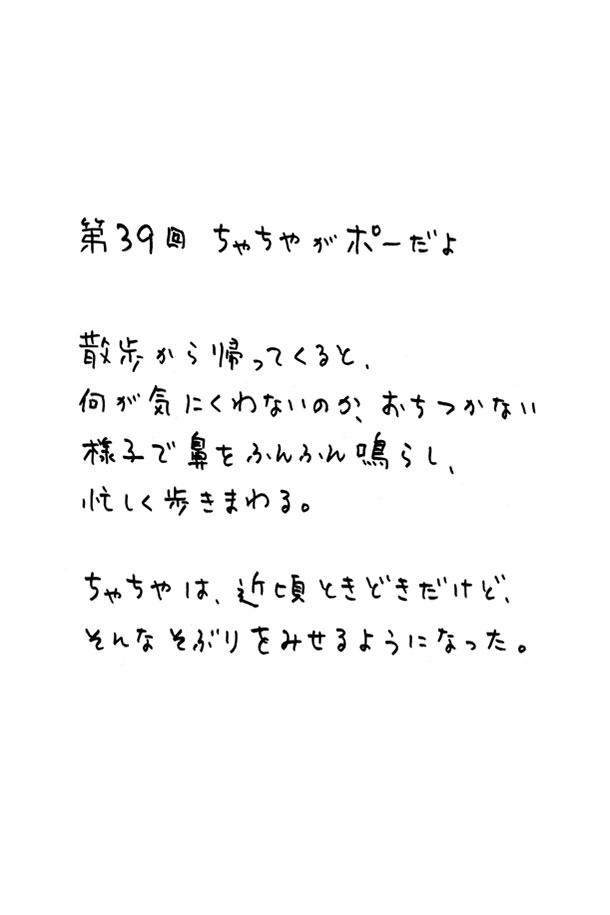 第39回 ちゃちゃがポーだよ
散歩から帰ってくると、
何が気にくわないのか、おちつかない
様子で鼻をふんふん鳴らし、
忙しく歩きまわる。
ちゃちゃは、近頃ときどきだけど、
そんなそぶりをみせるようになった。